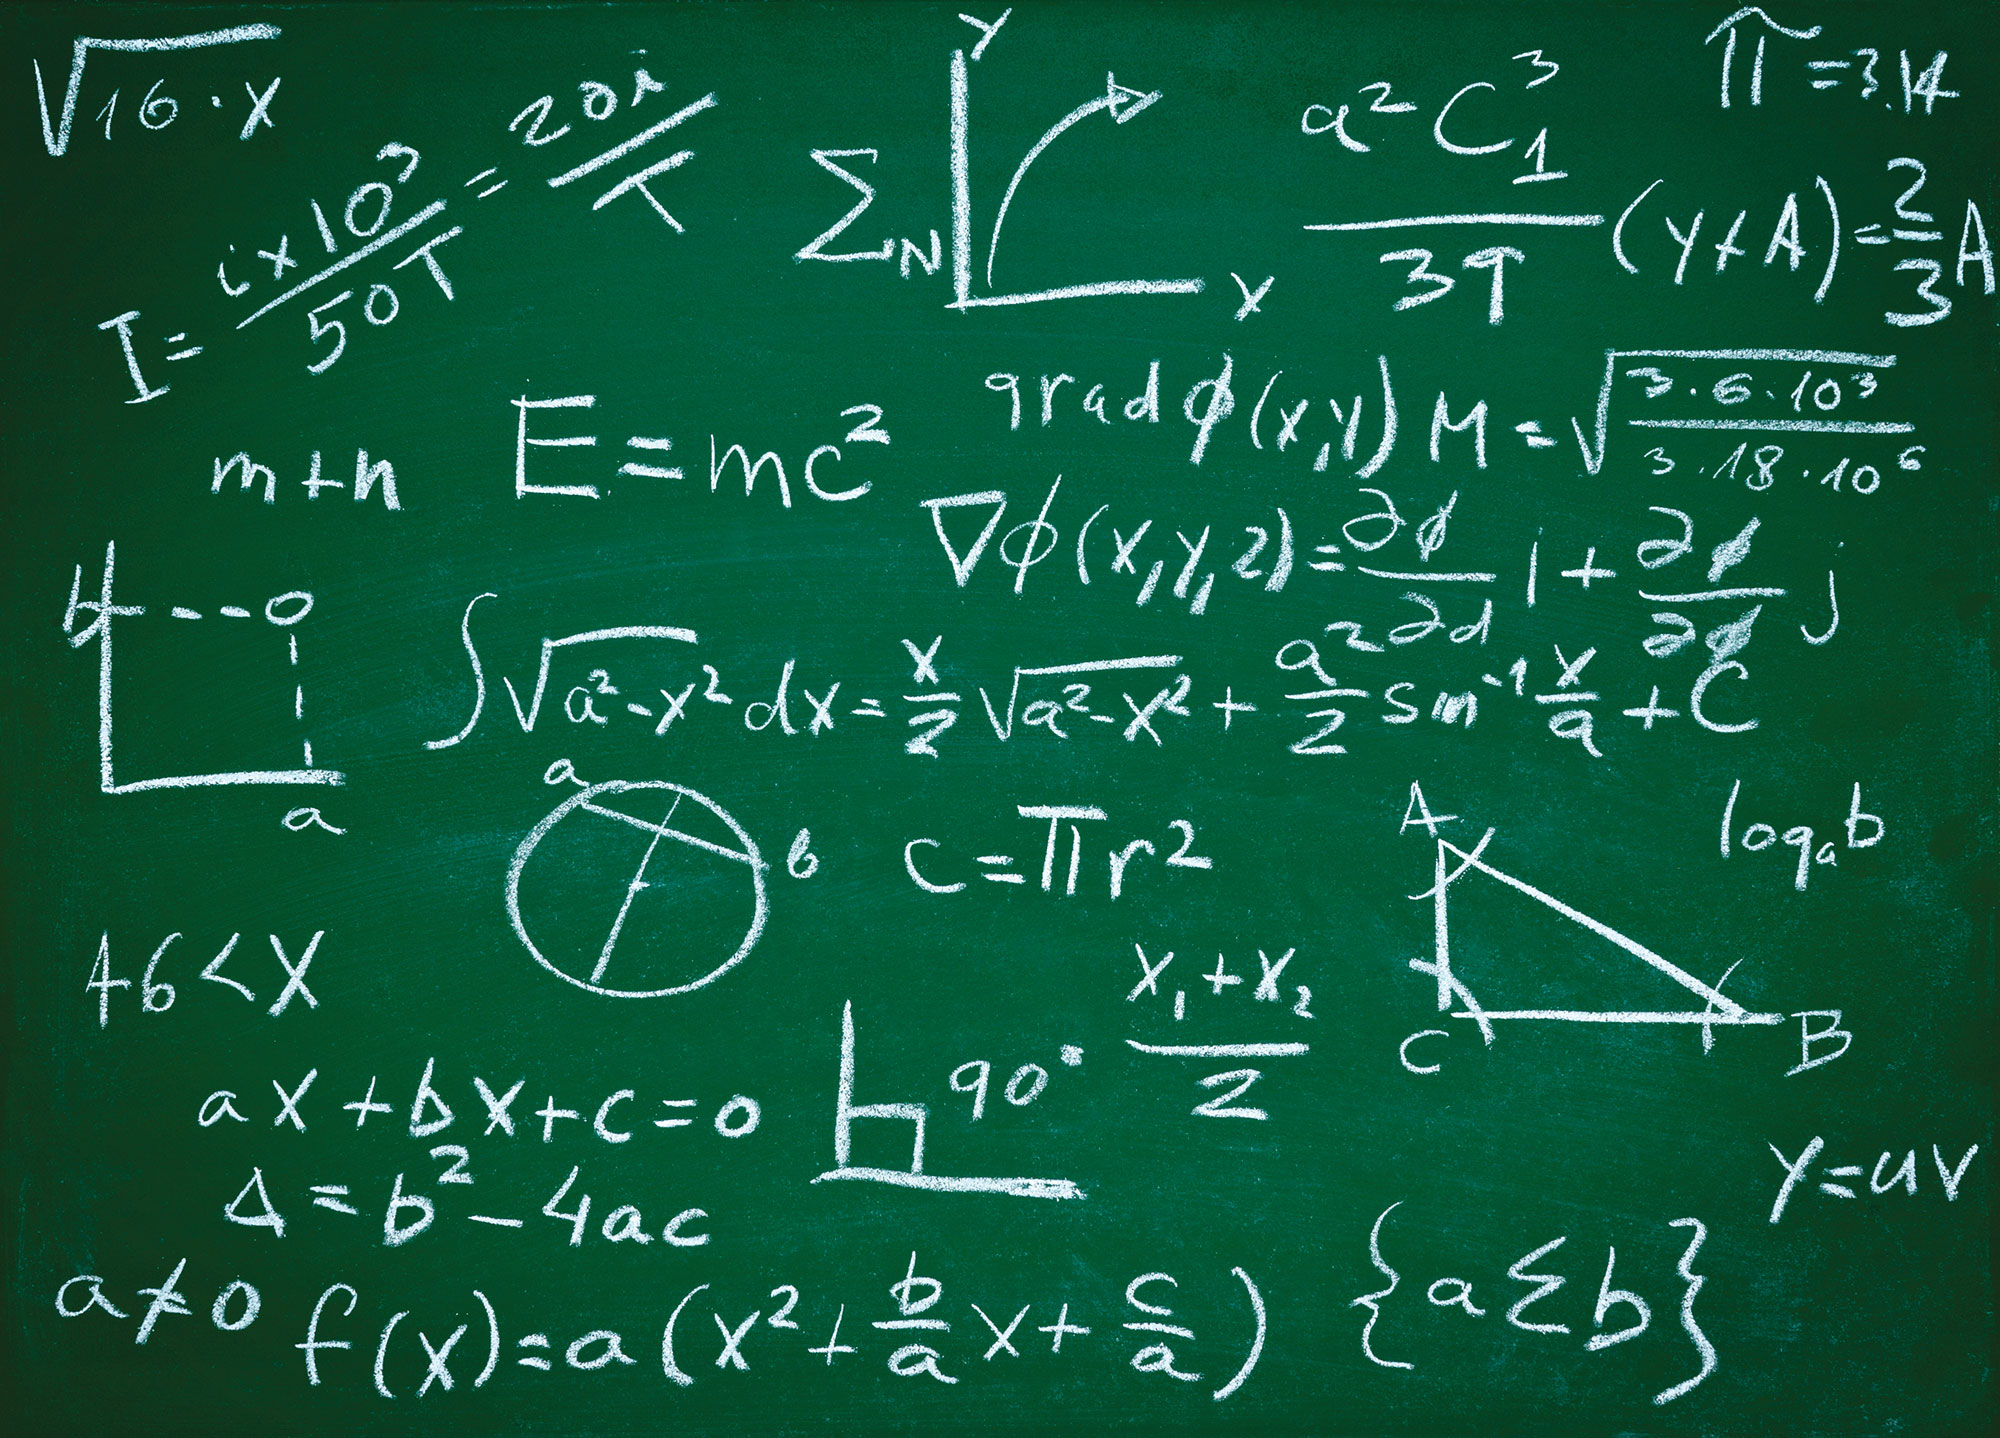 √16·x
I = i×10³/50T = 20i/T
Y
Σ N
X
a²C₁³/39 (y+A) = 2/3 A
π = 3.14
m+n
E=mc²
grad φ(x,y)
M = √(3·6·10³/3·18·10⁶)
∇φ(x,y,2) = ∂φ/∂d i + ∂φ/∂φ j
b
a
∫√a²-x² dx = x/2 √a²-x² + a²/2 sin⁻¹ x/a + C
a
b
c=πr²
A
C
B
logₐb
+6<X
x₁+x₂/2
ax+bx+c=0
90°
Δ=b²-4ac
y=uv
a≠0
f(x)=a(x²+b/a x+c/a)
{a Σ b}